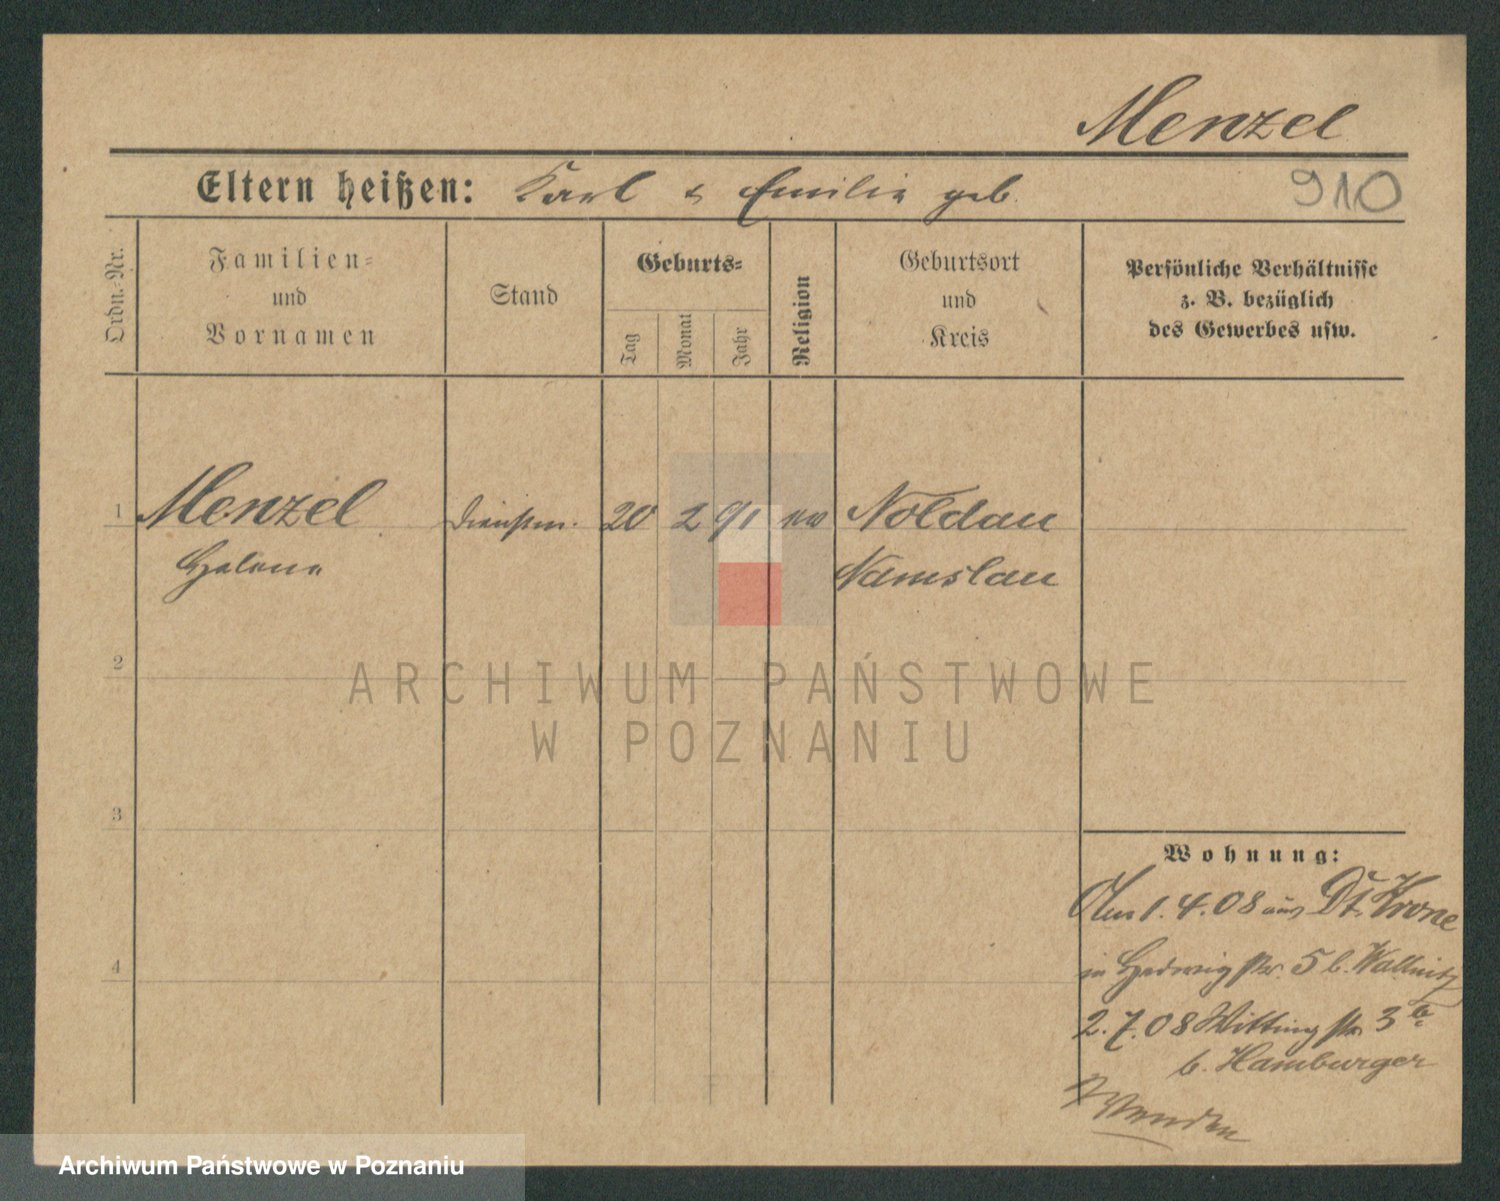 Menzel
Eltern heißen: Karl & Emilie geb.
910
Ordn.-Nr.
Familien-
und
Vornamen
Stand
Geburts-
Tag
Monat
Jahr
Religion
Geburtsort
und
Kreis
Persönliche Verhältnisse
z. B. bezüglich
des Gewerbes usw.
1 Menzel Dienstm. 20 2 91 ev Noldau
Helene Namslau
2
3
4
Wohnung:
Am 1.4.08 aus Dt. Krone
in Hedwigstr. 5 b. Wallnitz
2.7.08 Wittingstr. 3
b. Hamburger
Wenden
ARCHIWUM PAŃSTWOWE
W POZNANIU
Archiwum Państwowe w Poznaniu